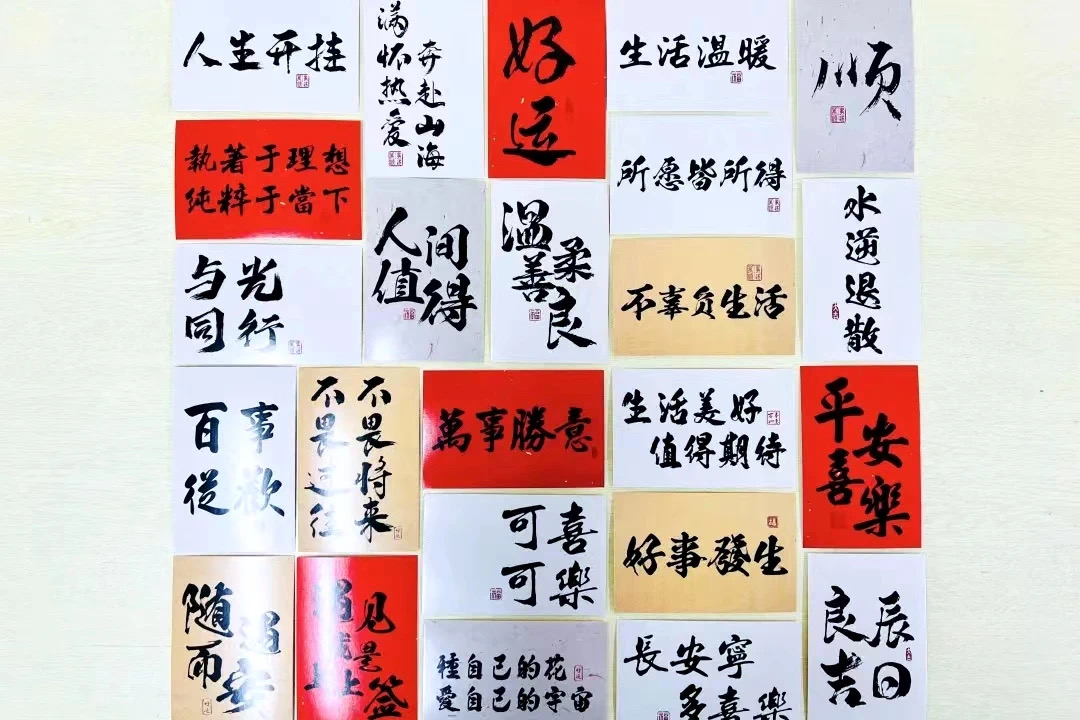 人生开挂
满怀热爱
奔赴山海
好运
生活温暖
顺
執著于理想
纯粹于當下
所愿皆所得
水逆退散
与光
同行
人间
值得
温柔
善良
不辜负生活
百事
從歡
不畏将来
不畏过往
萬事勝意
生活美好
值得期待
平安
喜樂
可喜
可樂
好事發生
随遇
而安
遇见
就是
上上签
種自己的花
愛自己的宇宙
長安寧
多喜樂
良辰
吉日